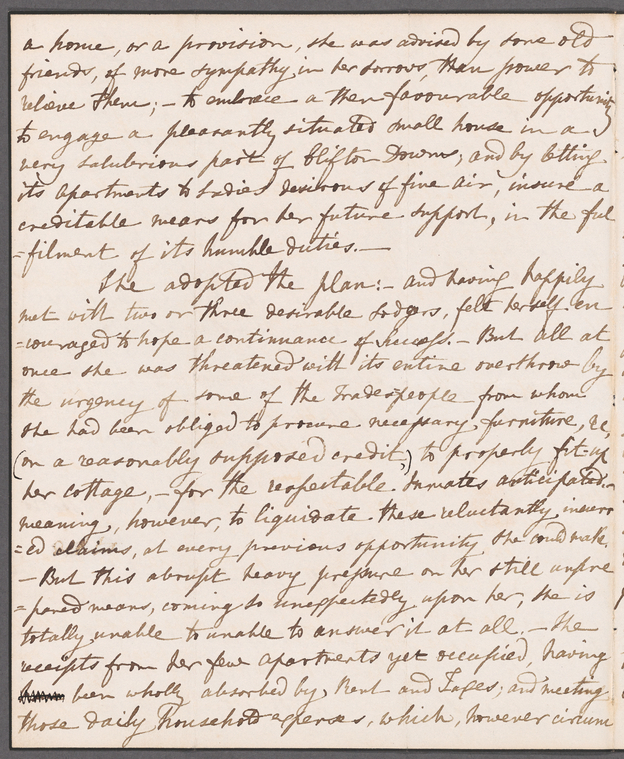 a home, or a provision, she was advised by some old
friends, of more sympathy in her sorrows, than power to
relieve them; – to embrace a then favourable opportunity
to engage a pleasantly situated small house in a
very salubrious part of Clifton Downs; and by letting
its apartments to Ladies desirous of fine air, insure a
creditable means for her future support, in the ful
=filment of its humble duties. —
She adopted the plan: – and having happily
met with two or three desirable Lodgers, felt herself en
=couraged to hope a continuance of success. – But all at
once she was threatened with its entire overthrow by
the urgency of some of the Tradespeople from whom
she had been obliged to procure necessary furniture, &c,
(on a reasonably supposed credit,) to properly fit-up
her cottage, – for the respectable Inmates anticipated. –
meaning, however, to liquidate these reluctantly incurr
=ed claims, at every previous opportunity she could make.
– But this abrupt heavy pressure on her still unpre
=pared means, coming so unexpectedly upon her, she is
totally unable to unable to answer it at all. – The
receipts from her few apartments yet occupied, having
been wholly absorbed by Rent and Taxes; and meeting
those daily household expenses, which, however circum